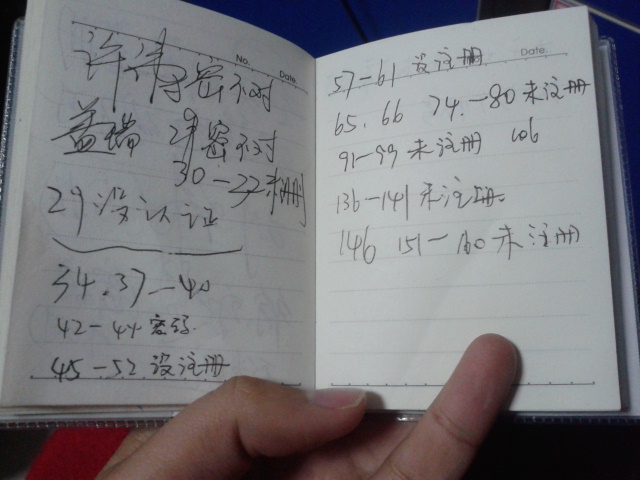 No.
Date.
许沛守密不对
益瑞 29密不对
30-32未注册
29没认证
34.37-40
42-44密码.
45-52没注册
Date.
57-61 没注册
65.66 74.-80未注册
91-99未注册 106
136-141未注册.
146 151-160未注册